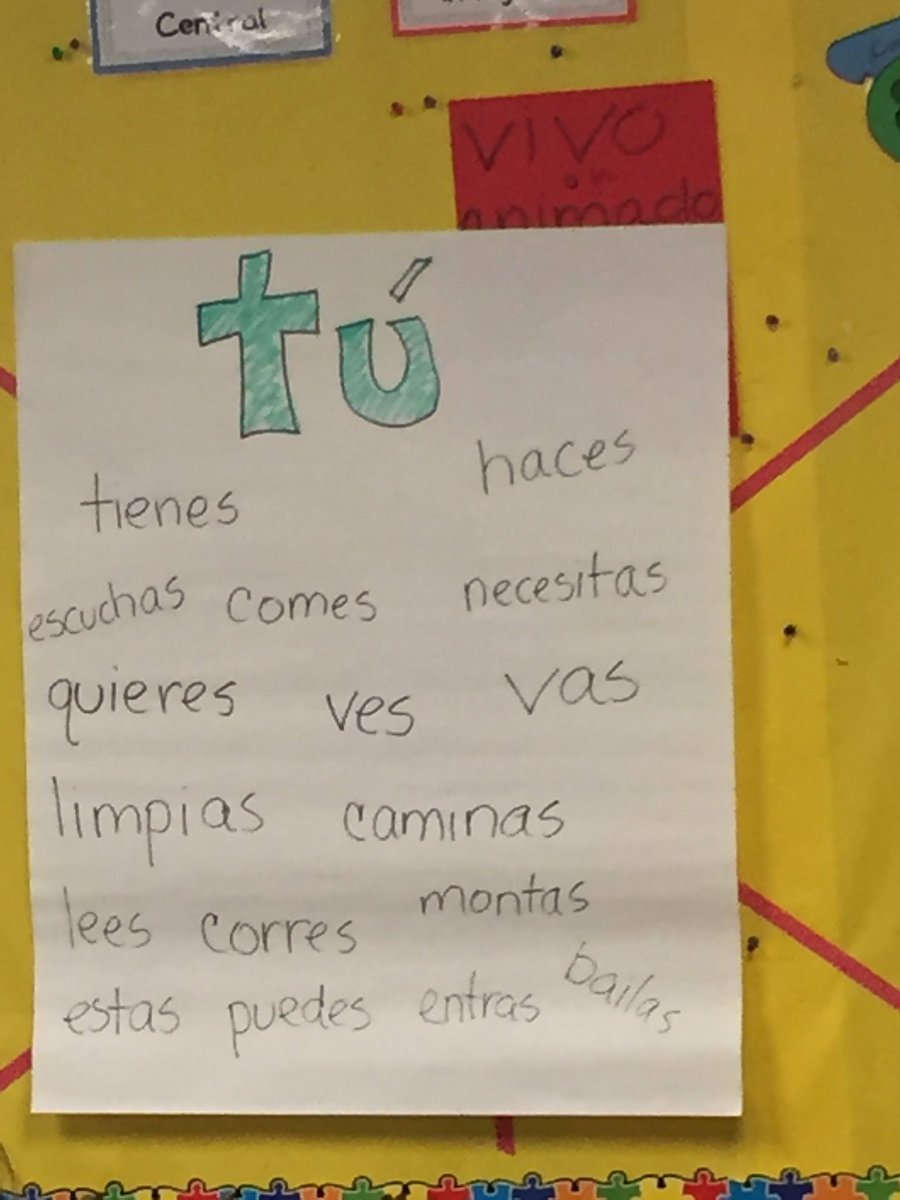 Central
vivo
animado
tú
tienes haces
escuchas comes necesitas
quieres ves vas
limpias caminas
lees corres montas
estas puedes entras bailas